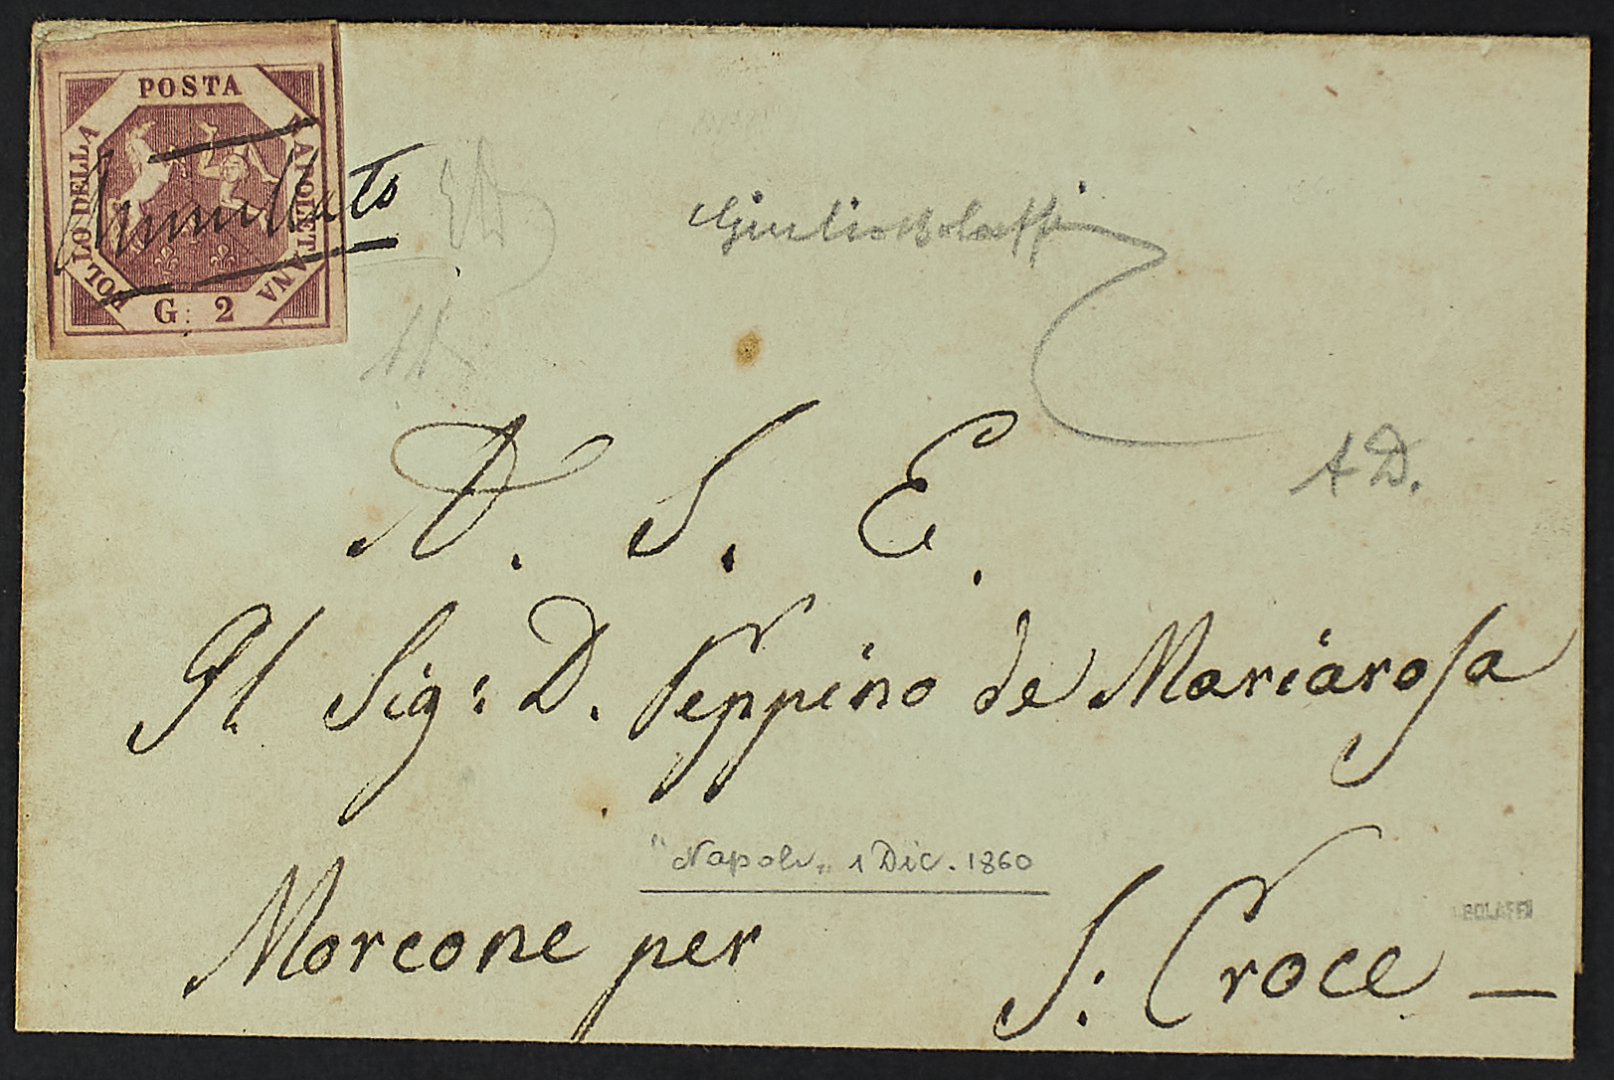 POSTA
BOLLO DELLA
NAPOLETANA
G. 2
Annullato
Giulio Bolaffi
AD.
D. S. E.
Il Sig: D. Peppino de Mariarosa
"Napoli" 1 Dic. 1860
Morcone per S: Croce —
BOLAFFI